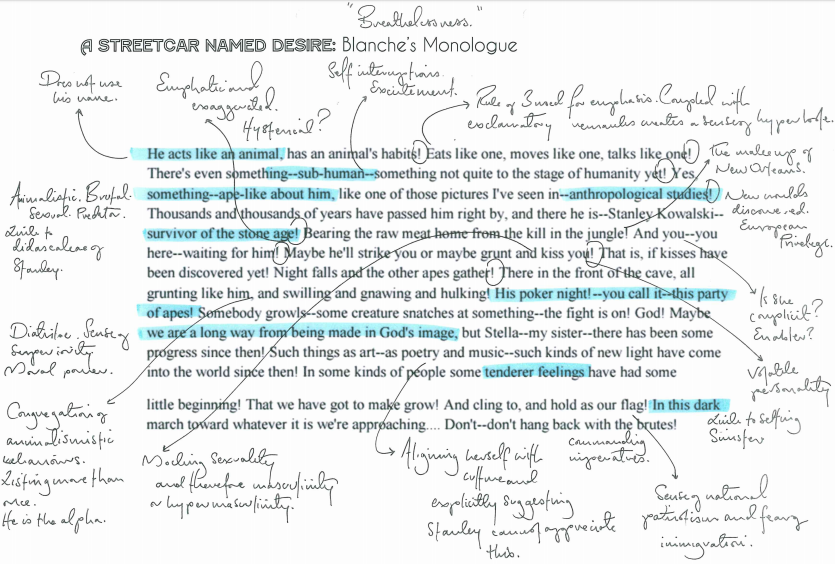 "Breathlessness."
A STREETCAR NAMED DESIRE: Blanche's Monologue
Does not use
his name.
Emphatic and
exaggerated.
Hysterical?
Self interruptions.
Excitement.
Rule of 3 used for emphasis. Coupled with
exclamatory remarks creates a sense of hyperbole.
The make up of
New Orleans.
New worlds
discovered.
European
Privilege.
Animalistic. Brutal.
Sexual Predator.
Links to
didascaleae of
Stanley.
He acts like an animal, has an animal's habits! Eats like one, moves like one, talks like one!
There's even something--sub-human--something not quite to the stage of humanity yet! Yes,
something--ape-like about him, like one of those pictures I've seen in--anthropological studies!
Thousands and thousands of years have passed him right by, and there he is--Stanley Kowalski--
survivor of the stone age! Bearing the raw meat home from the kill in the jungle! And you--you
here--waiting for him! Maybe he'll strike you or maybe grunt and kiss you! That is, if kisses have
been discovered yet! Night falls and the other apes gather! There in the front of the cave, all
grunting like him, and swilling and gnawing and hulking! His poker night!--you call it--this party
of apes! Somebody growls--some creature snatches at something--the fight is on! God! Maybe
we are a long way from being made in God's image, but Stella--my sister--there has been some
progress since then! Such things as art--as poetry and music--such kinds of new light have come
into the world since then! In some kinds of people some tenderer feelings have had some
little beginning! That we have got to make grow! And cling to, and hold as our flag! In this dark
march toward whatever it is we're approaching.... Don't--don't hang back with the brutes!
Is she
complicit?
Enabler?
Volatile
personality
Links to setting
Sinister
Diatribe. Sense of
Superiority
Moral power.
Congregation of
animalismistic
behaviours.
Listing more than
once.
He is the alpha.
Mocking sexuality
and therefore masculinity
or hyper masculinity.
Aligning herself with
culture and
explicitly suggesting
Stanley cannot appreciate
this.
commanding
imperatives.
Sense of national
patriotism and fearing
immigration.